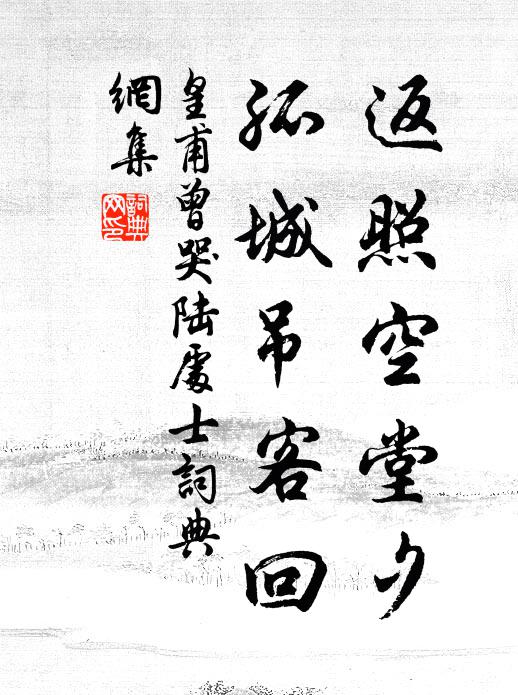 返照空堂夕
孤城吊客回
皇甫曾哭陆處士詞典
網集
詞典
网印